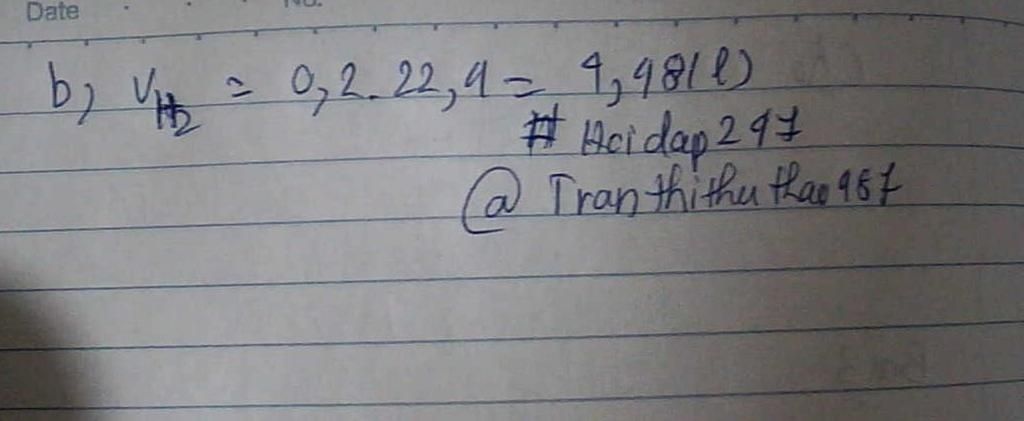 Date No.
b, V_H2 = 0,2.22,4 = 4,48(l)
# Hoidap247
@ Tranthithuthao967